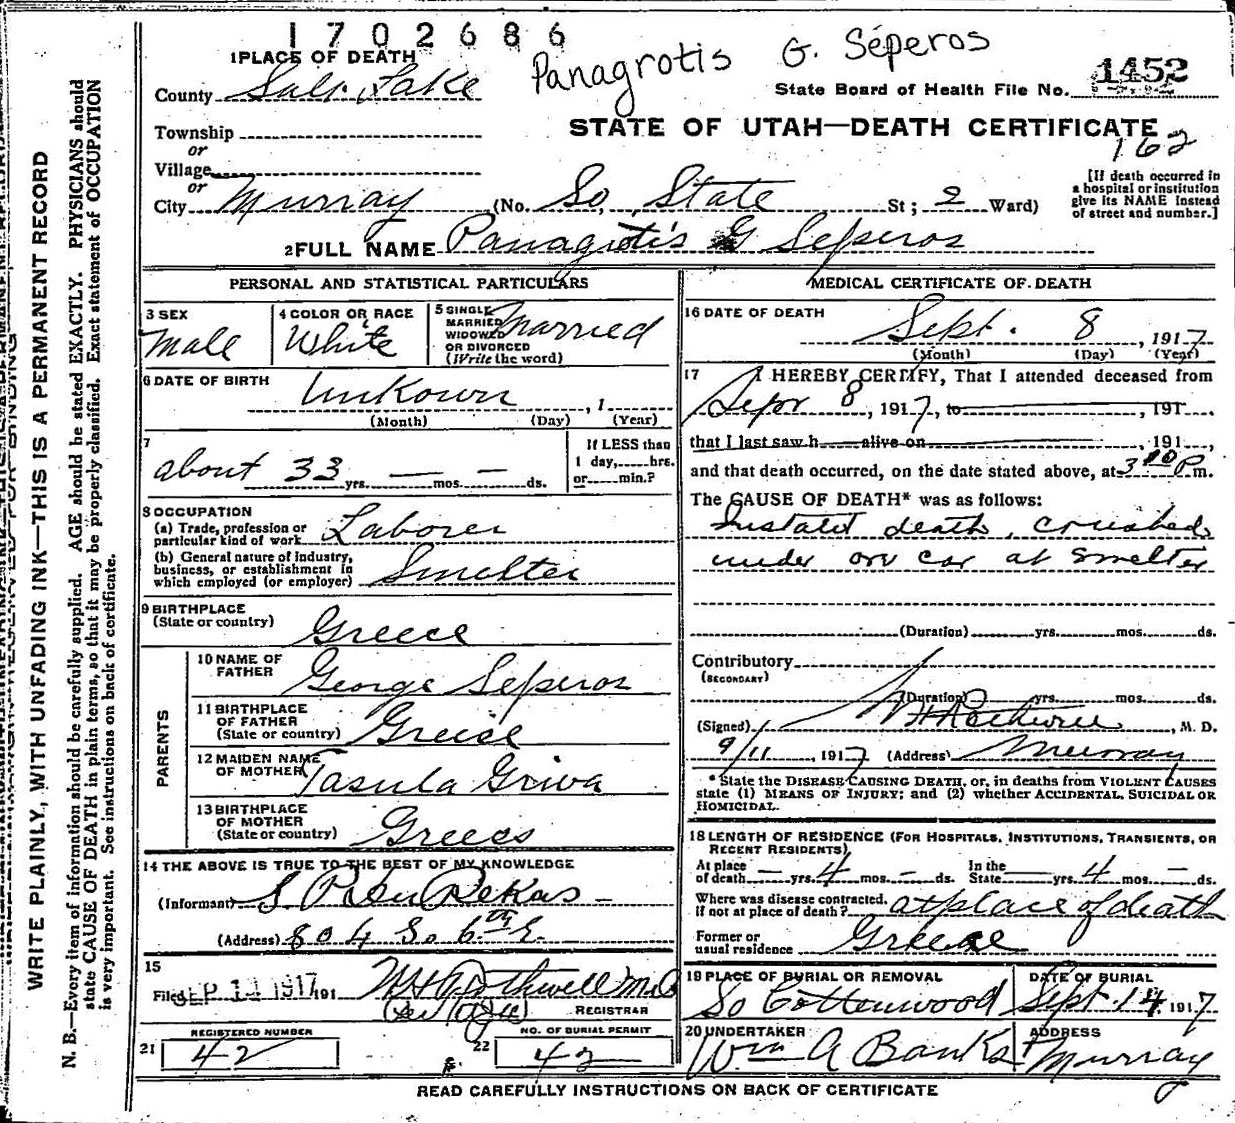 1702686
Panagrotis G. Séperos
1 PLACE OF DEATH
County Salt Lake
State Board of Health File No. 1452
Township
or
STATE OF UTAH—DEATH CERTIFICATE
162
Village
or
City Murray (No. So, State St; 2 Ward)
[If death occurred in
a hospital or institution
give its NAME instead
of street and number.]
2 FULL NAME Panagrotis G Seperos
PERSONAL AND STATISTICAL PARTICULARS
3 SEX
Male
4 COLOR OR RACE
White
5 SINGLE
MARRIED
WIDOWED
OR DIVORCED
(Write the word)
Married
6 DATE OF BIRTH
Unkown , 1
(Month) (Day) (Year)
7
about 33 yrs. — mos. — ds.
If LESS than
1 day, hrs.
or min.?
8 OCCUPATION
(a) Trade, profession or
particular kind of work Laborer
(b) General nature of industry,
business, or establishment in
which employed (or employer) Smelter
9 BIRTHPLACE
(State or country) Greece
PARENTS
10 NAME OF
FATHER George Seperos
11 BIRTHPLACE
OF FATHER
(State or country) Greise
12 MAIDEN NAME
OF MOTHER Tasula Griva
13 BIRTHPLACE
OF MOTHER
(State or country) Greecs
14 THE ABOVE IS TRUE TO THE BEST OF MY KNOWLEDGE
(Informant)
(Address) 804 So. 6th E.
15
Filed SEP 1 1917 191
REGISTRAR
REGISTERED NUMBER
21 42
NO. OF BURIAL PERMIT
22 42
MEDICAL CERTIFICATE OF DEATH
16 DATE OF DEATH
Sept. 8 , 1917
(Month) (Day) (Year)
17 I HEREBY CERTIFY, That I attended deceased from
Sept 8 , 1917, to , 191 ,
that I last saw h alive on , 191 ,
and that death occurred, on the date stated above, at 3 10 P m.
The CAUSE OF DEATH* was as follows:
Instant death, crushed
under ore car at smelter
(Duration) yrs. mos. ds.
Contributory
(SECONDARY)
(Duration) yrs. mos. ds.
(Signed) , M. D.
9/11 , 1917 (Address) Murray
* State the DISEASE CAUSING DEATH, or, in deaths from VIOLENT CAUSES
state (1) MEANS OF INJURY; and (2) whether ACCIDENTAL, SUICIDAL OR
HOMICIDAL.
18 LENGTH OF RESIDENCE (FOR HOSPITALS, INSTITUTIONS, TRANSIENTS, OR
RECENT RESIDENTS).
At place
of death — yrs. 4 mos. — ds.
In the
State — yrs. 4 mos. — ds.
Where was disease contracted,
if not at place of death? at place of death
Former or
usual residence Greece
19 PLACE OF BURIAL OR REMOVAL
So Cottenwood
DATE OF BURIAL
Sept. 14 1917
20 UNDERTAKER
Wm A Banks
ADDRESS
Murray
READ CAREFULLY INSTRUCTIONS ON BACK OF CERTIFICATE
WRITE PLAINLY, WITH UNFADING INK—THIS IS A PERMANENT RECORD
N. B.—Every item of information should be carefully supplied. AGE should be stated EXACTLY. PHYSICIANS should
state CAUSE OF DEATH in plain terms, so that it may be properly classified. Exact statement of OCCUPATION
is very important. See instructions on back of certificate.